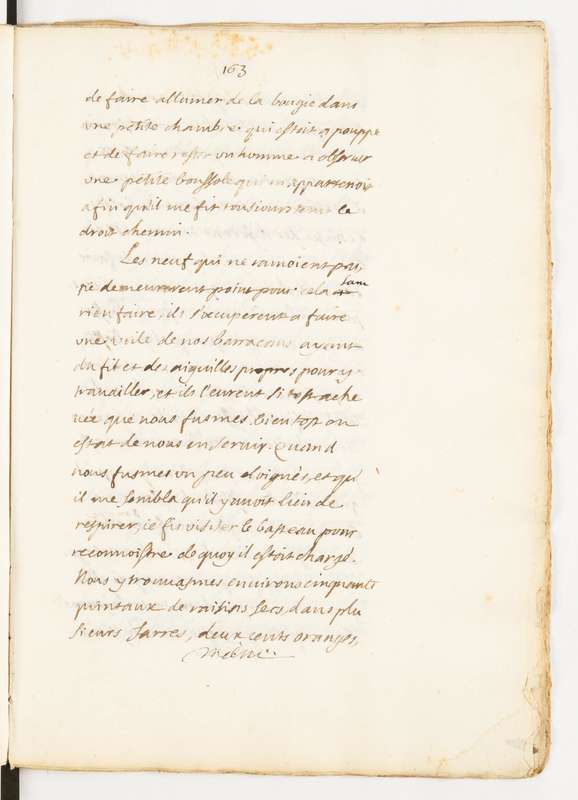 163
de faire allumer de la bougie dans
une petite chambre qui estoit a pouppe
et de faire rester un homme a observer
une petite boussole qui m'appartenoit
afin qu'il me fit tousiours tenir le
droit chemin.
Les neuf qui ne ramoient pas
ne demeurerent point pour cela sans
rien faire, ils s'occuperent a faire
une voile de nos barracans ayant
du fil et des aiguilles propres pour y
travailler, et ils l'eurent si tost ache
vée que nous fusmes bientost en
estat de nous en servir. Quand
nous fusmes un peu eloignés, et qu'
il me sembla qu'il y avoit lieu de
respirer, je fis visiter le basteau pour
reconnoistre de quoy il estoit chargé.
Nous y trouvasmes environ cinquante
quintaux de raisins secs, dans plu
sieurs Jarres, deux cents oranges,